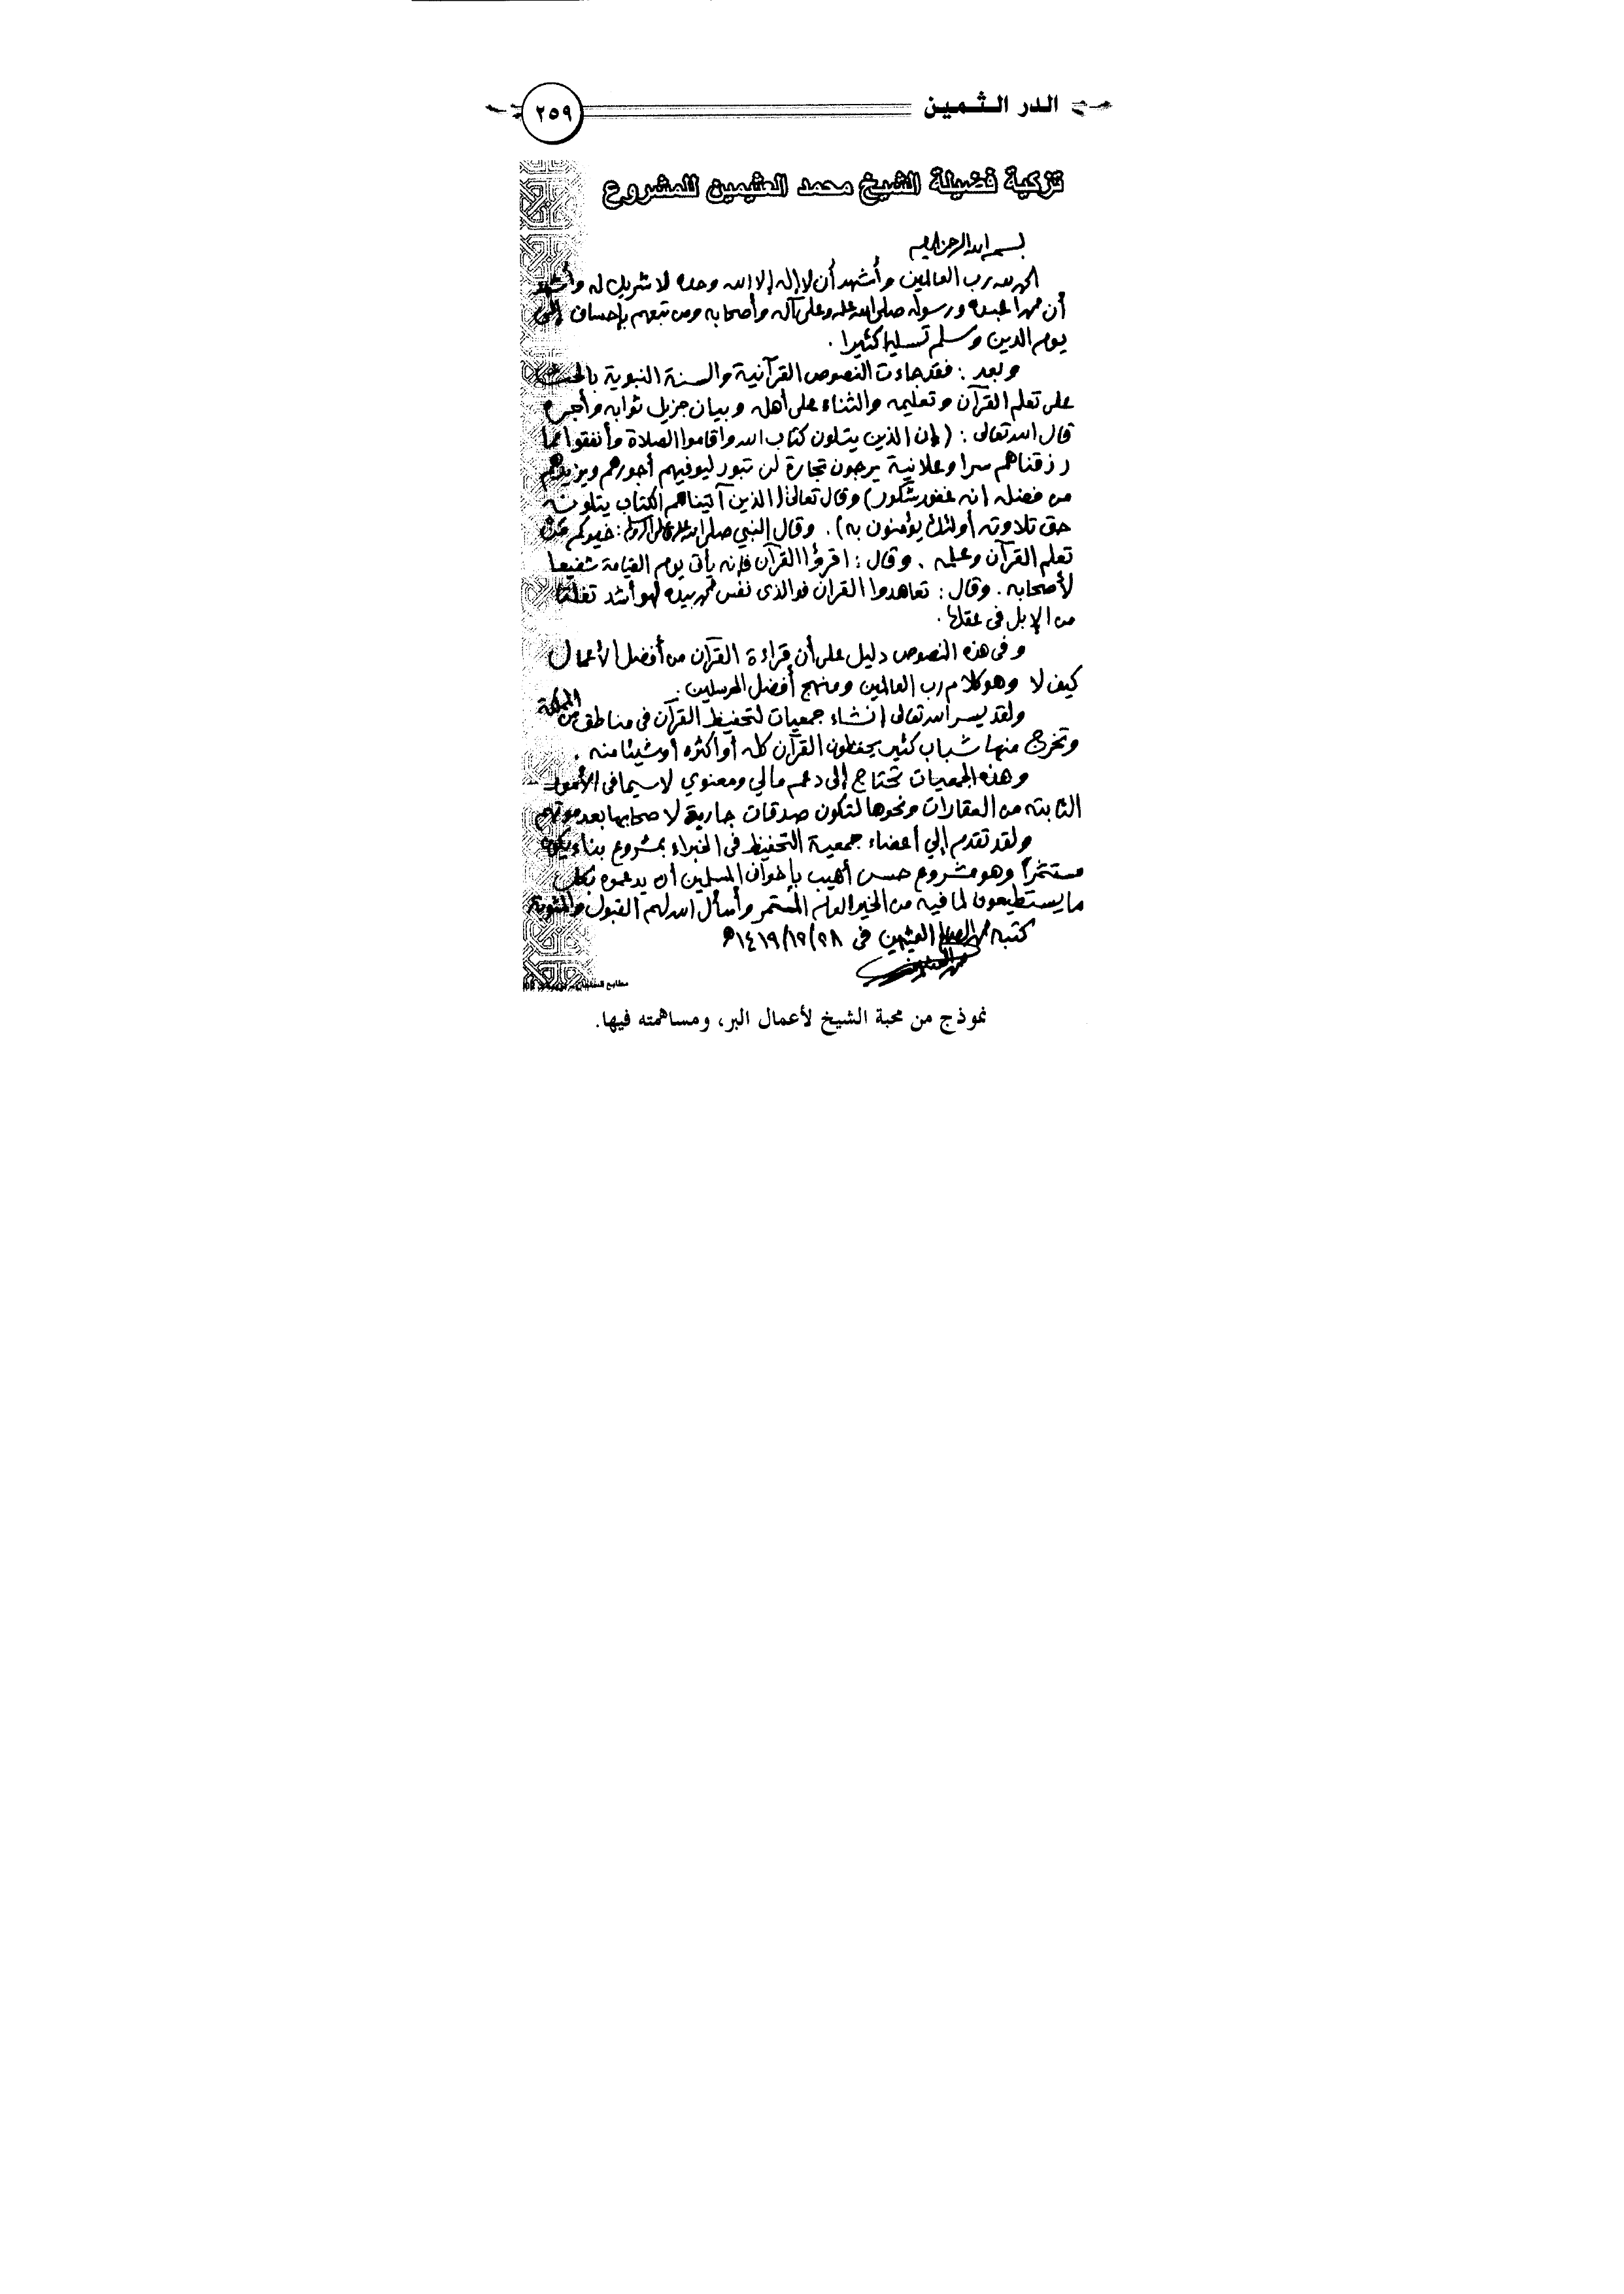 الدر الثمين
٢٥٩
تزكية فضيلة الشيخ محمد العثيمين للمشروع
بسم الله الرحمن الرحيم
الحمد لله رب العالمين وأشهد أن لا إله إلا الله وحده لا شريك له وأشهد
أن محمدا عبده ورسوله صلى الله عليه وعلى آله وأصحابه ومن تبعهم بإحسان إلى
يوم الدين وسلم تسليما كثيرا .
وبعد : فقد جاءت النصوص القرآنية والسنة النبوية بالحث
على تعلم القرآن وتعليمه والثناء على أهله وبيان جزيل ثوابه وأجره
قال الله تعالى : (إن الذين يتلون كتاب الله واقاموا الصلاة وأنفقوا مما
رزقناهم سرا وعلانية يرجون تجارة لن تبور ليوفيهم أجورهم ويزيدهم
من فضله انه غفور شكور) وقال تعالى (الذين آتيناهم الكتاب يتلونه
حق تلاوته أولئك يؤمنون به) . وقال النبي صلى الله عليه وعلى آله وسلم : خيركم من
تعلم القرآن وعلمه . وقال : اقرؤا القرآن فإنه يأتى يوم القيامة شفيعا
لأصحابه . وقال : تعاهدوا القرآن فوالذى نفس محمد بيده لهو أشد تفلتا
من الإبل فى عقلها .
وفى هذه النصوص دليل على أن قراءة القرآن من أفضل الأعمال
كيف لا وهو كلام رب العالمين ومنهج أفضل المرسلين .
ولقد يسر الله تعالى انشاء جمعيات لتحفيظ القرآن فى مناطق من المملكة
وتخرج منها شباب كثير يحفظون القرآن كله أو اكثره أو شيئا منه .
وهذه الجمعيات تحتاج إلى دعم مالي ومعنوي لاسيما فى الأمور
الثابته من العقارات ونحوها لتكون صدقات جارية لاصحابها بعد موتهم
ولقد تقدم إلي أعضاء جمعية التحفيظ فى الخبراء بمشروع بناء يكون
مستثمرا وهو مشروع حسن أهيب بإخوان المسلمين أن يدعموه بكل
ما يستطيعون لما فيه من الخير العام المستمر وأسأل الله لهم القبول والمثوبة
كتبه محمد الصالح العثيمين فى ١٤١٩/١٢/٢٨هـ
مطابع
نموذج من محبة الشيخ لأعمال البر، ومساهمته فيها.